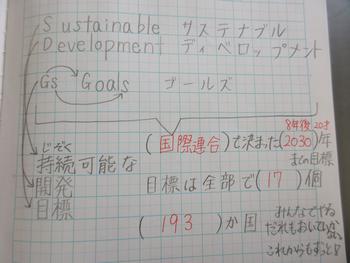 Sustainable サステナブル
Development ディベロップメント
Gs Goals ゴールズ
8年後 20才
(国際連合)で決まった(2030)年
までの目標
じぞく
持続可能な
開発 目標は全部で(17)個
目標
(193)か国 みんなでやる
だれもおいていかない
これからもずっと